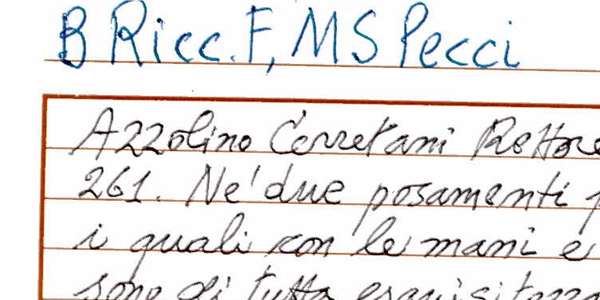 B Ricc. F, MS Pecci
Azzolino Cerretani Rettore
261. Ne' due posamenti
i quali con le mani e
sono di tutta esquisitezza